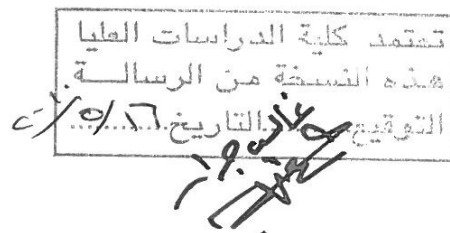 تعتمد كلية الدراسات العليا
هذه النسخة من الرسالــة
التوقيع.........التاريخ..١٦/٥/